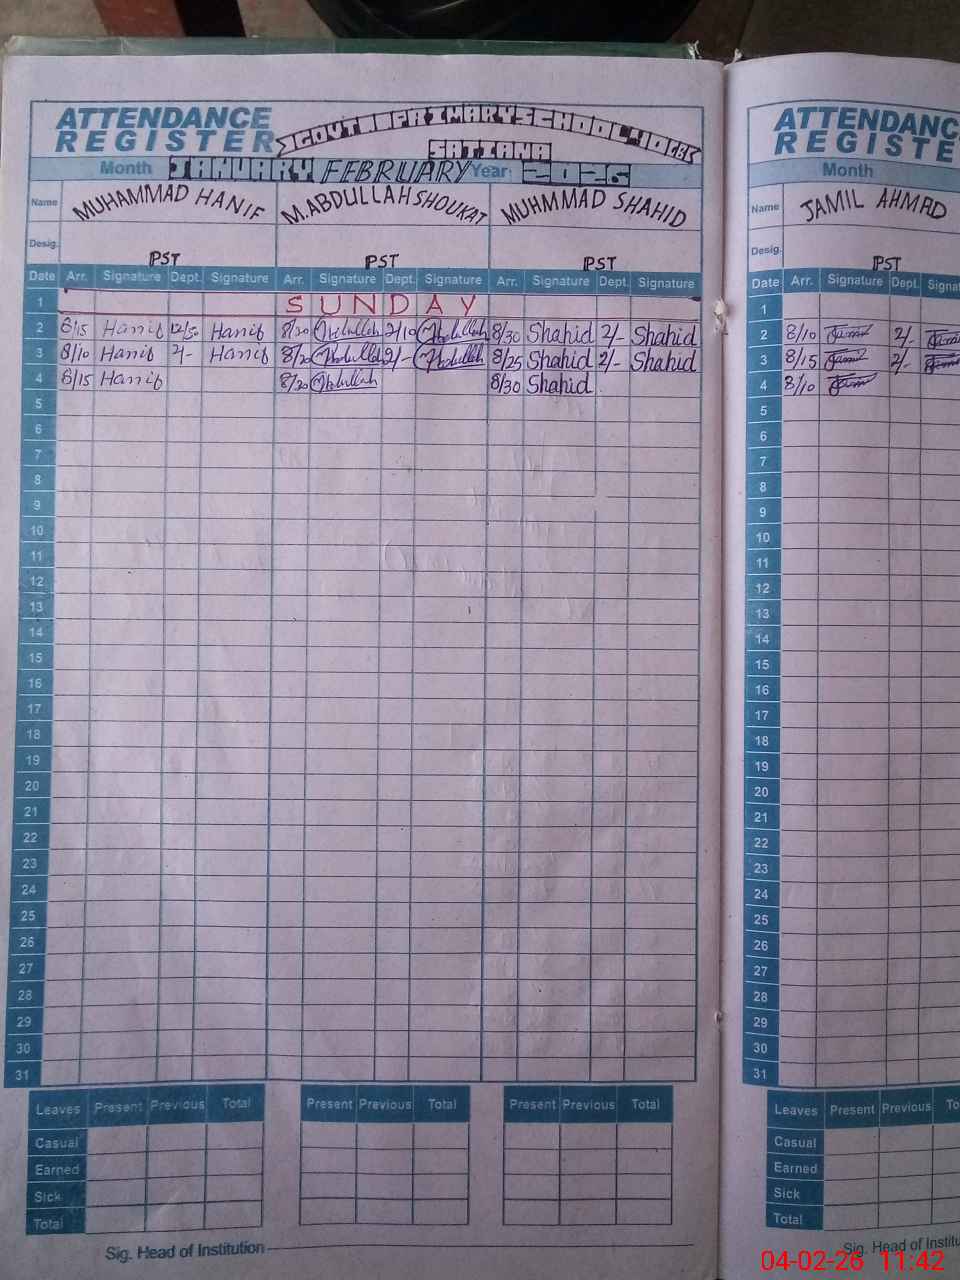 ATTENDANCE
REGISTER
GOVT. PRIMARY SCHOOL 40 GB
SATIANA
Month JANUARY FEBRUARY Year: 2026
Name MUHAMMAD HANIF M.ABDULLAH SHOUKAT MUHMMAD SHAHID
Desig. PST PST PST
Date Arr. Signature Dept. Signature Arr. Signature Dept. Signature Arr. Signature Dept. Signature
1 SUNDAY
2 8/15 Hanif 12/50 Hanif 8/20 Abdullah 2/10 Abdullah 8/30 Shahid 2/- Shahid
3 8/10 Hanif 2/- Hanif 8/20 Abdullah 2/- Abdullah 8/25 Shahid 2/- Shahid
4 8/15 Hanif 8/20 Abdullah 8/30 Shahid
5
6
7
8
9
10
11
12
13
14
15
16
17
18
19
20
21
22
23
24
25
26
27
28
29
30
31
Leaves Present Previous Total Present Previous Total Present Previous Total
Casual
Earned
Sick
Total
Sig. Head of Institution
ATTENDANC
REGISTE
Month
Name JAMIL AHMAD
Desig. PST
Date Arr. Signature Dept. Signat
1
2 8/10 Jamil 2/-
3 8/15 Jamil 2/-
4 8/10 Jamil
5
6
7
8
9
10
11
12
13
14
15
16
17
18
19
20
21
22
23
24
25
26
27
28
29
30
31
Leaves Present Previous To
Casual
Earned
Sick
Total
Sig. Head of Institu
04-02-26 11:42